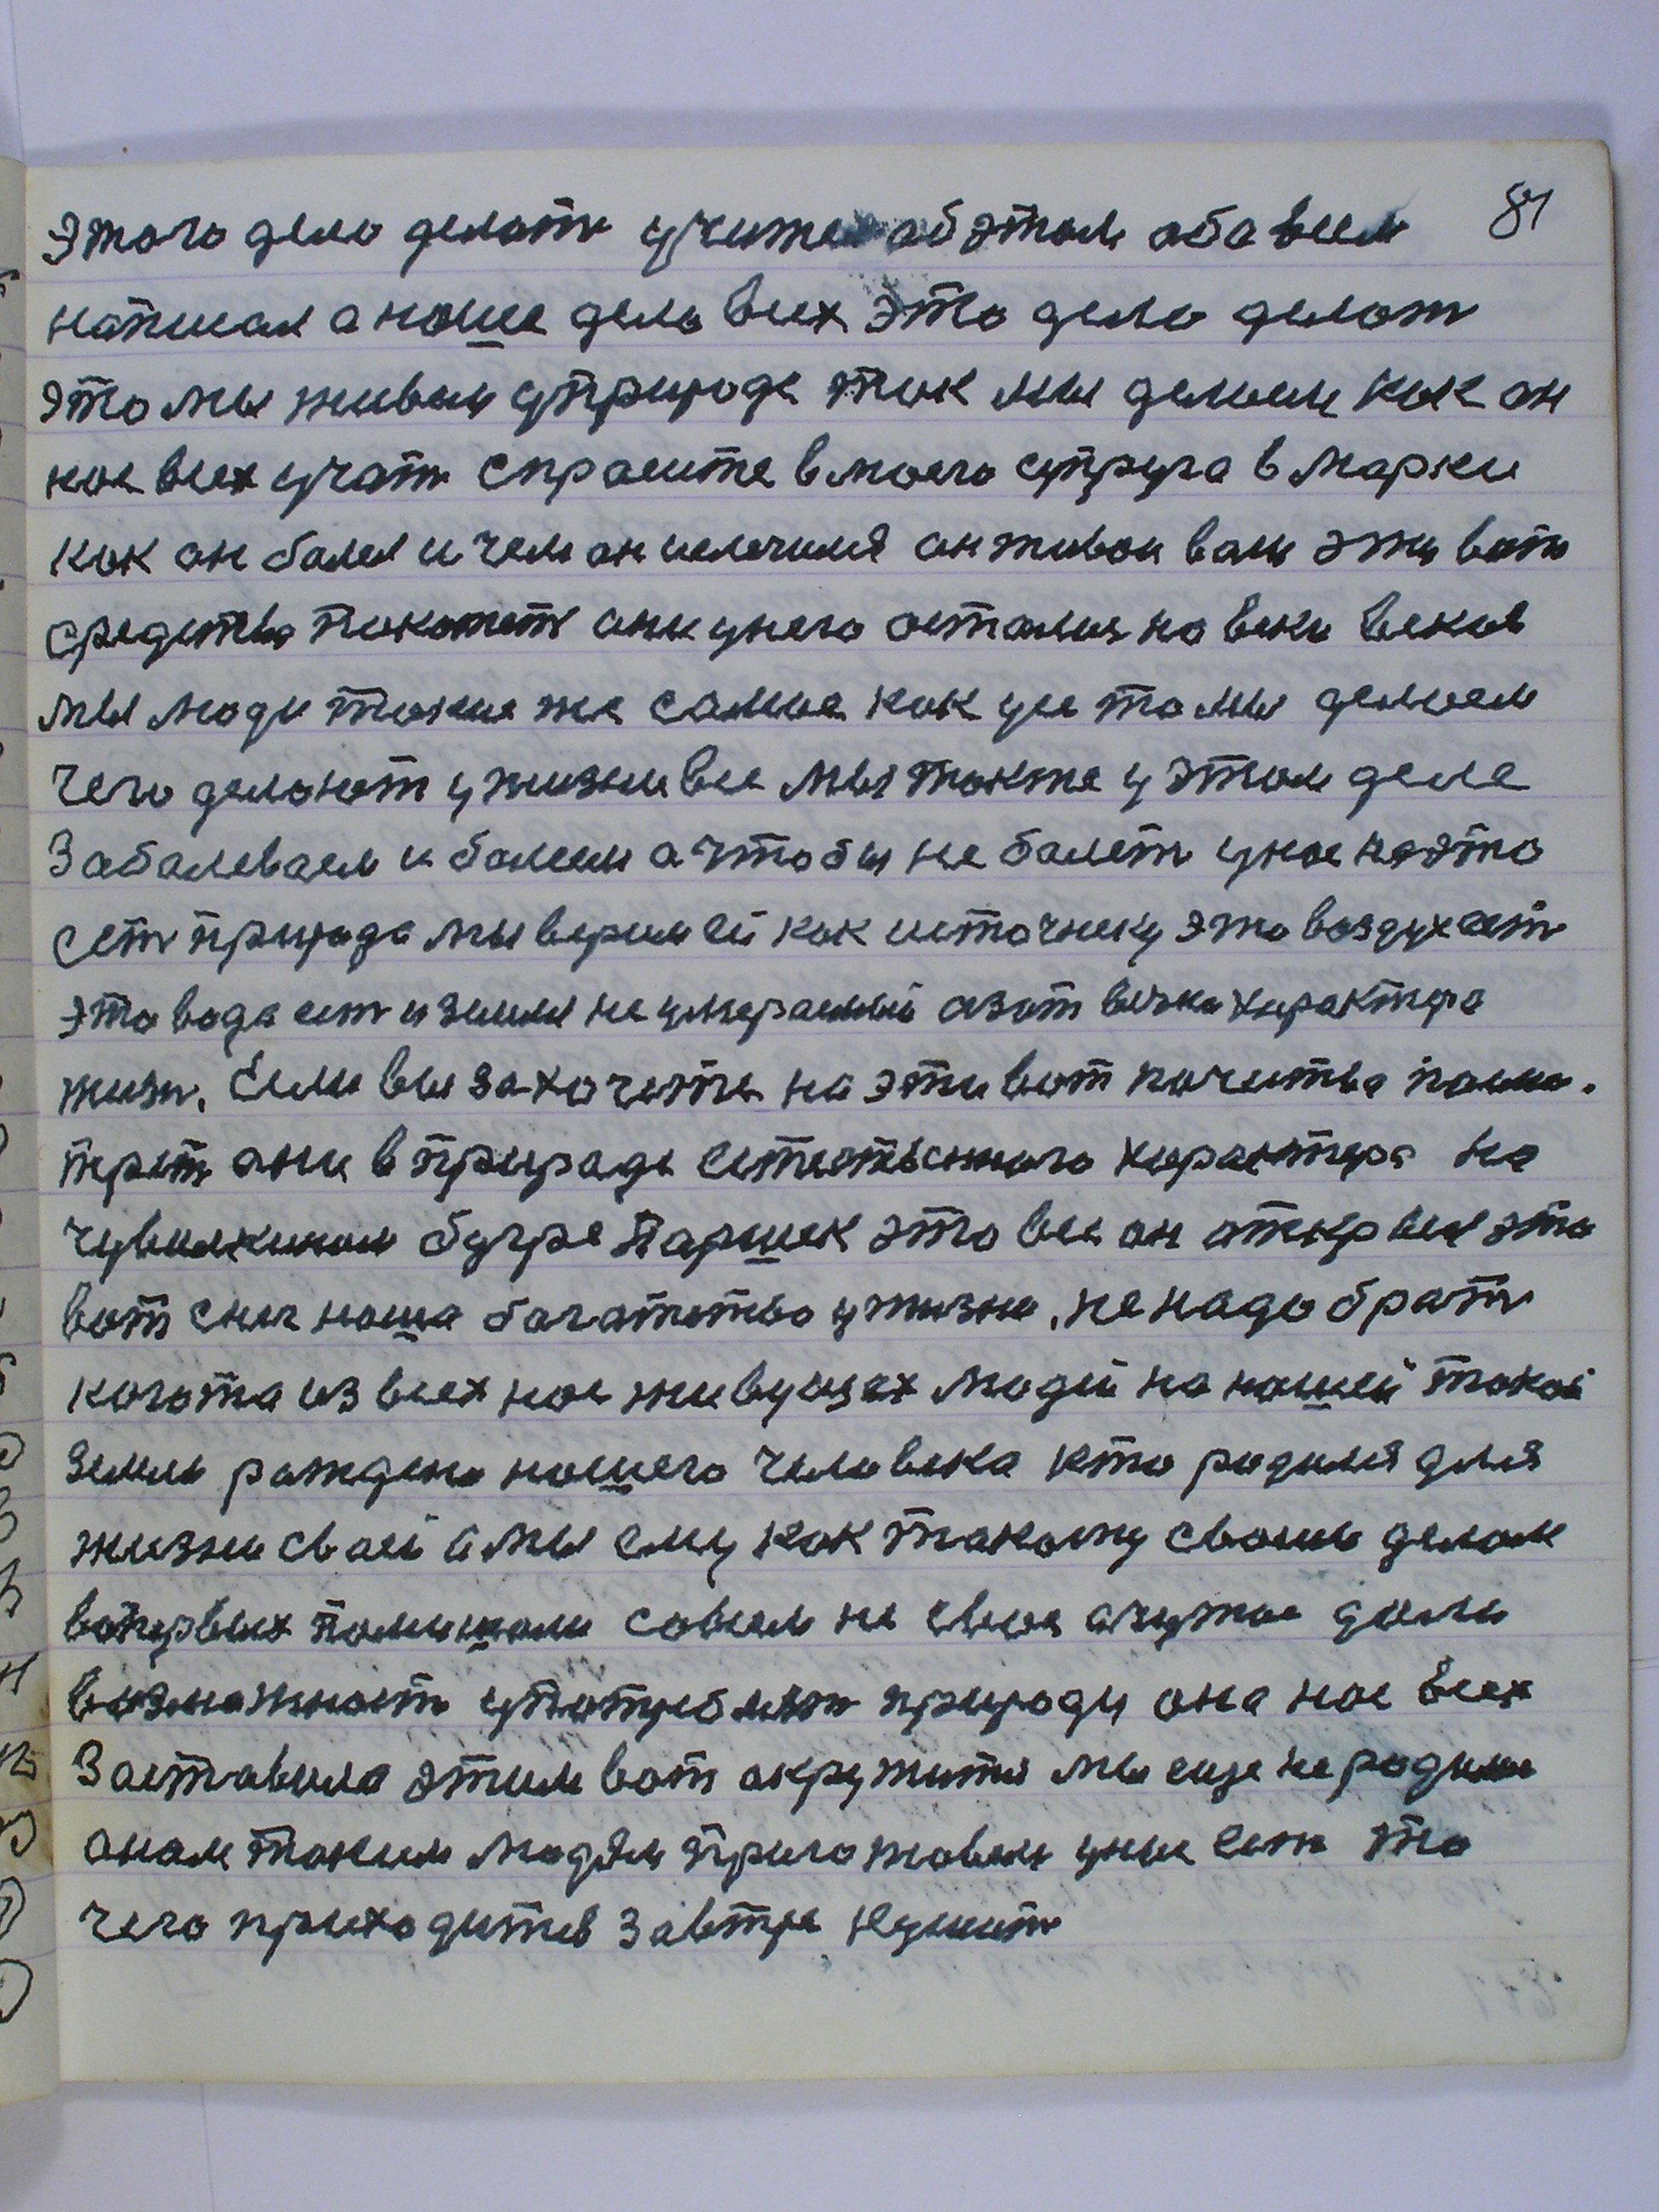 81
этого дело делать учител об этом обо всем
написал а наше дело всех это дело делать
это мы живем у природе так мы делаем как он
нас всех учать спросите в моего супруга в марки
как он болел и чем он излечился он живои вам эти вот
средства покажеть они у него остались на веки веков
мы люди такие же самые как усе то мы делаем
чего делають у жизни все мы также у этом деле
заболеваем и болеем а чтобы не болеть у нас на это
есть природа мы верим ей как источнику это воздух есть
это вода есть и земля не умераемый азот вечно характера
жизн. Если вы захочете на эти вот качества посмо-
треть они в природе естественного характера на
чувилкином бугре Паршек это все он открыл это
вот снег наша богатство у жизни, не надо брать
когота из всех нас живущех людей на нашей такой
земле рождено нашего человека кто родился для
жизни своей а мы ему как такому своим делом
вопервых помешали совсем не свое а чужое дали
возможность употреблять природу она нас всех
заставила этим вот окружится мы еще не родили
а нам таким людям приготовили у них есть то
чего приходится завтра кушить